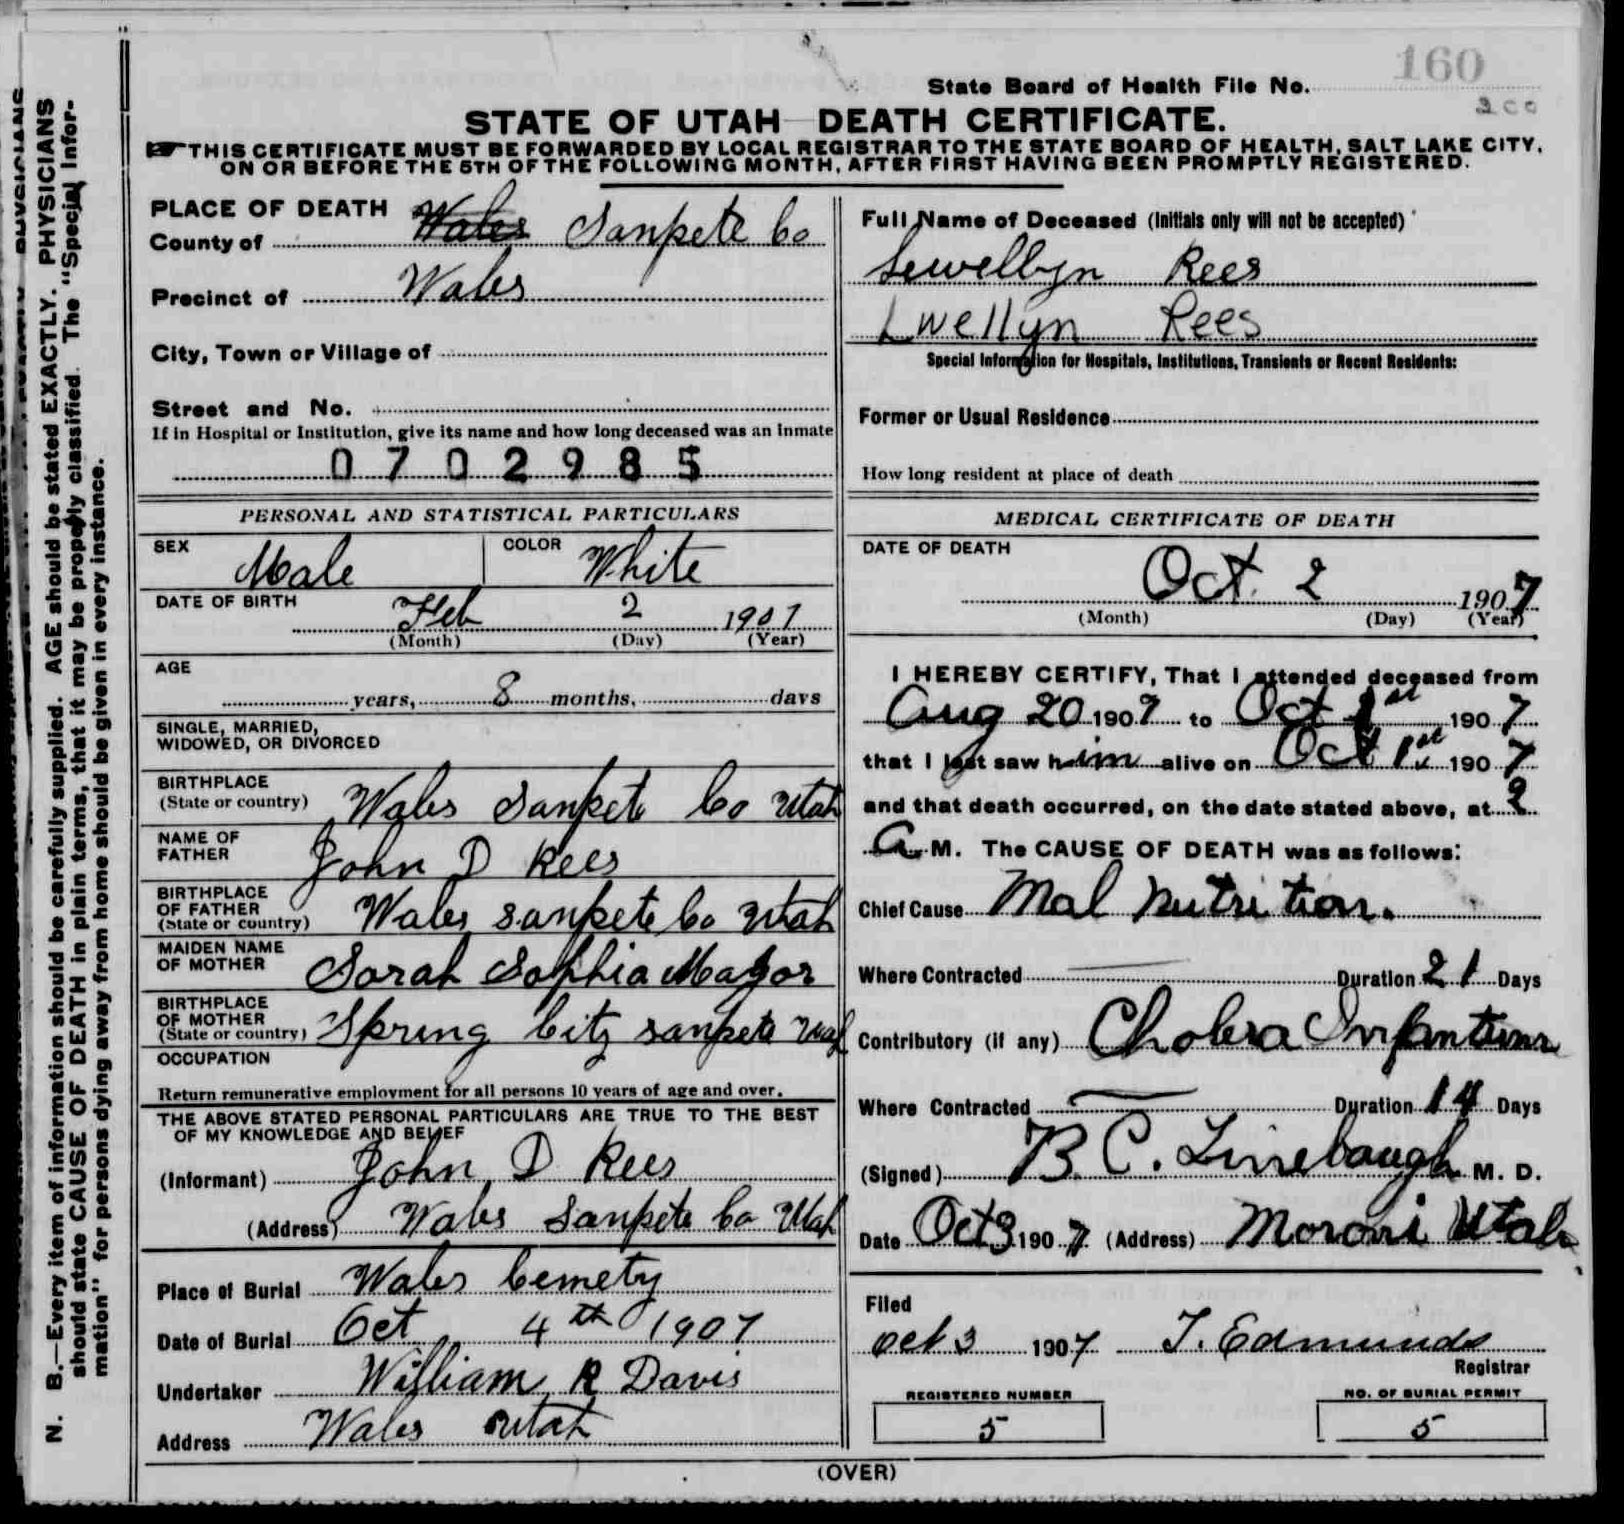 160
State Board of Health File No.
200
STATE OF UTAH DEATH CERTIFICATE.
THIS CERTIFICATE MUST BE FORWARDED BY LOCAL REGISTRAR TO THE STATE BOARD OF HEALTH, SALT LAKE CITY,
ON OR BEFORE THE 5TH OF THE FOLLOWING MONTH, AFTER FIRST HAVING BEEN PROMPTLY REGISTERED.
PLACE OF DEATH
County of Wales Sanpete Co
Precinct of Wales
City, Town or Village of
Street and No.
If in Hospital or Institution, give its name and how long deceased was an inmate
0702985
PERSONAL AND STATISTICAL PARTICULARS
SEX Male COLOR White
DATE OF BIRTH Feb 2 1907
(Month) (Day) (Year)
AGE
years, 8 months, days
SINGLE, MARRIED,
WIDOWED, OR DIVORCED
BIRTHPLACE
(State or country) Wales Sanpete Co Utah
NAME OF
FATHER John D Rees
BIRTHPLACE
OF FATHER
(State or country) Wales Sanpete Co Utah
MAIDEN NAME
OF MOTHER Sarah Sophia Mayor
BIRTHPLACE
OF MOTHER
(State or country) Spring City Sanpete Utah
OCCUPATION
Return remunerative employment for all persons 10 years of age and over.
THE ABOVE STATED PERSONAL PARTICULARS ARE TRUE TO THE BEST
OF MY KNOWLEDGE AND BELIEF
(Informant) John D Rees
(Address) Wales Sanpete Co Utah
Place of Burial Wales Cemety
Date of Burial Oct 4th 1907
Undertaker William R Davis
Address Wales Utah
Full Name of Deceased (Initials only will not be accepted)
Lewellyn Rees
Lwellyn Rees
Special Information for Hospitals, Institutions, Transients or Recent Residents:
Former or Usual Residence
How long resident at place of death
MEDICAL CERTIFICATE OF DEATH
DATE OF DEATH
Oct. 2 1907
(Month) (Day) (Year)
I HEREBY CERTIFY, That I attended deceased from
Aug 20 1907 to Oct 1st 1907
that I last saw him alive on Oct 1st 1907
and that death occurred, on the date stated above, at 2
a M. The CAUSE OF DEATH was as follows:
Chief Cause Mal Nutrition.
Where Contracted Duration 21 Days
Contributory (if any) Cholera Infantum
Where Contracted Duration 14 Days
(Signed) B. C. Linebaugh M. D.
Date Oct 3 1907 (Address) Moroni Utah
Filed
Oct 3 1907 T. Edmunds
Registrar
REGISTERED NUMBER
5
NO. OF BURIAL PERMIT
5
(OVER)
N. B.—Every item of information should be carefully supplied. AGE should be stated EXACTLY. PHYSICIANS
should state CAUSE OF DEATH in plain terms, that it may be properly classified. The "Special Infor-
mation" for persons dying away from home should be given in every instance.